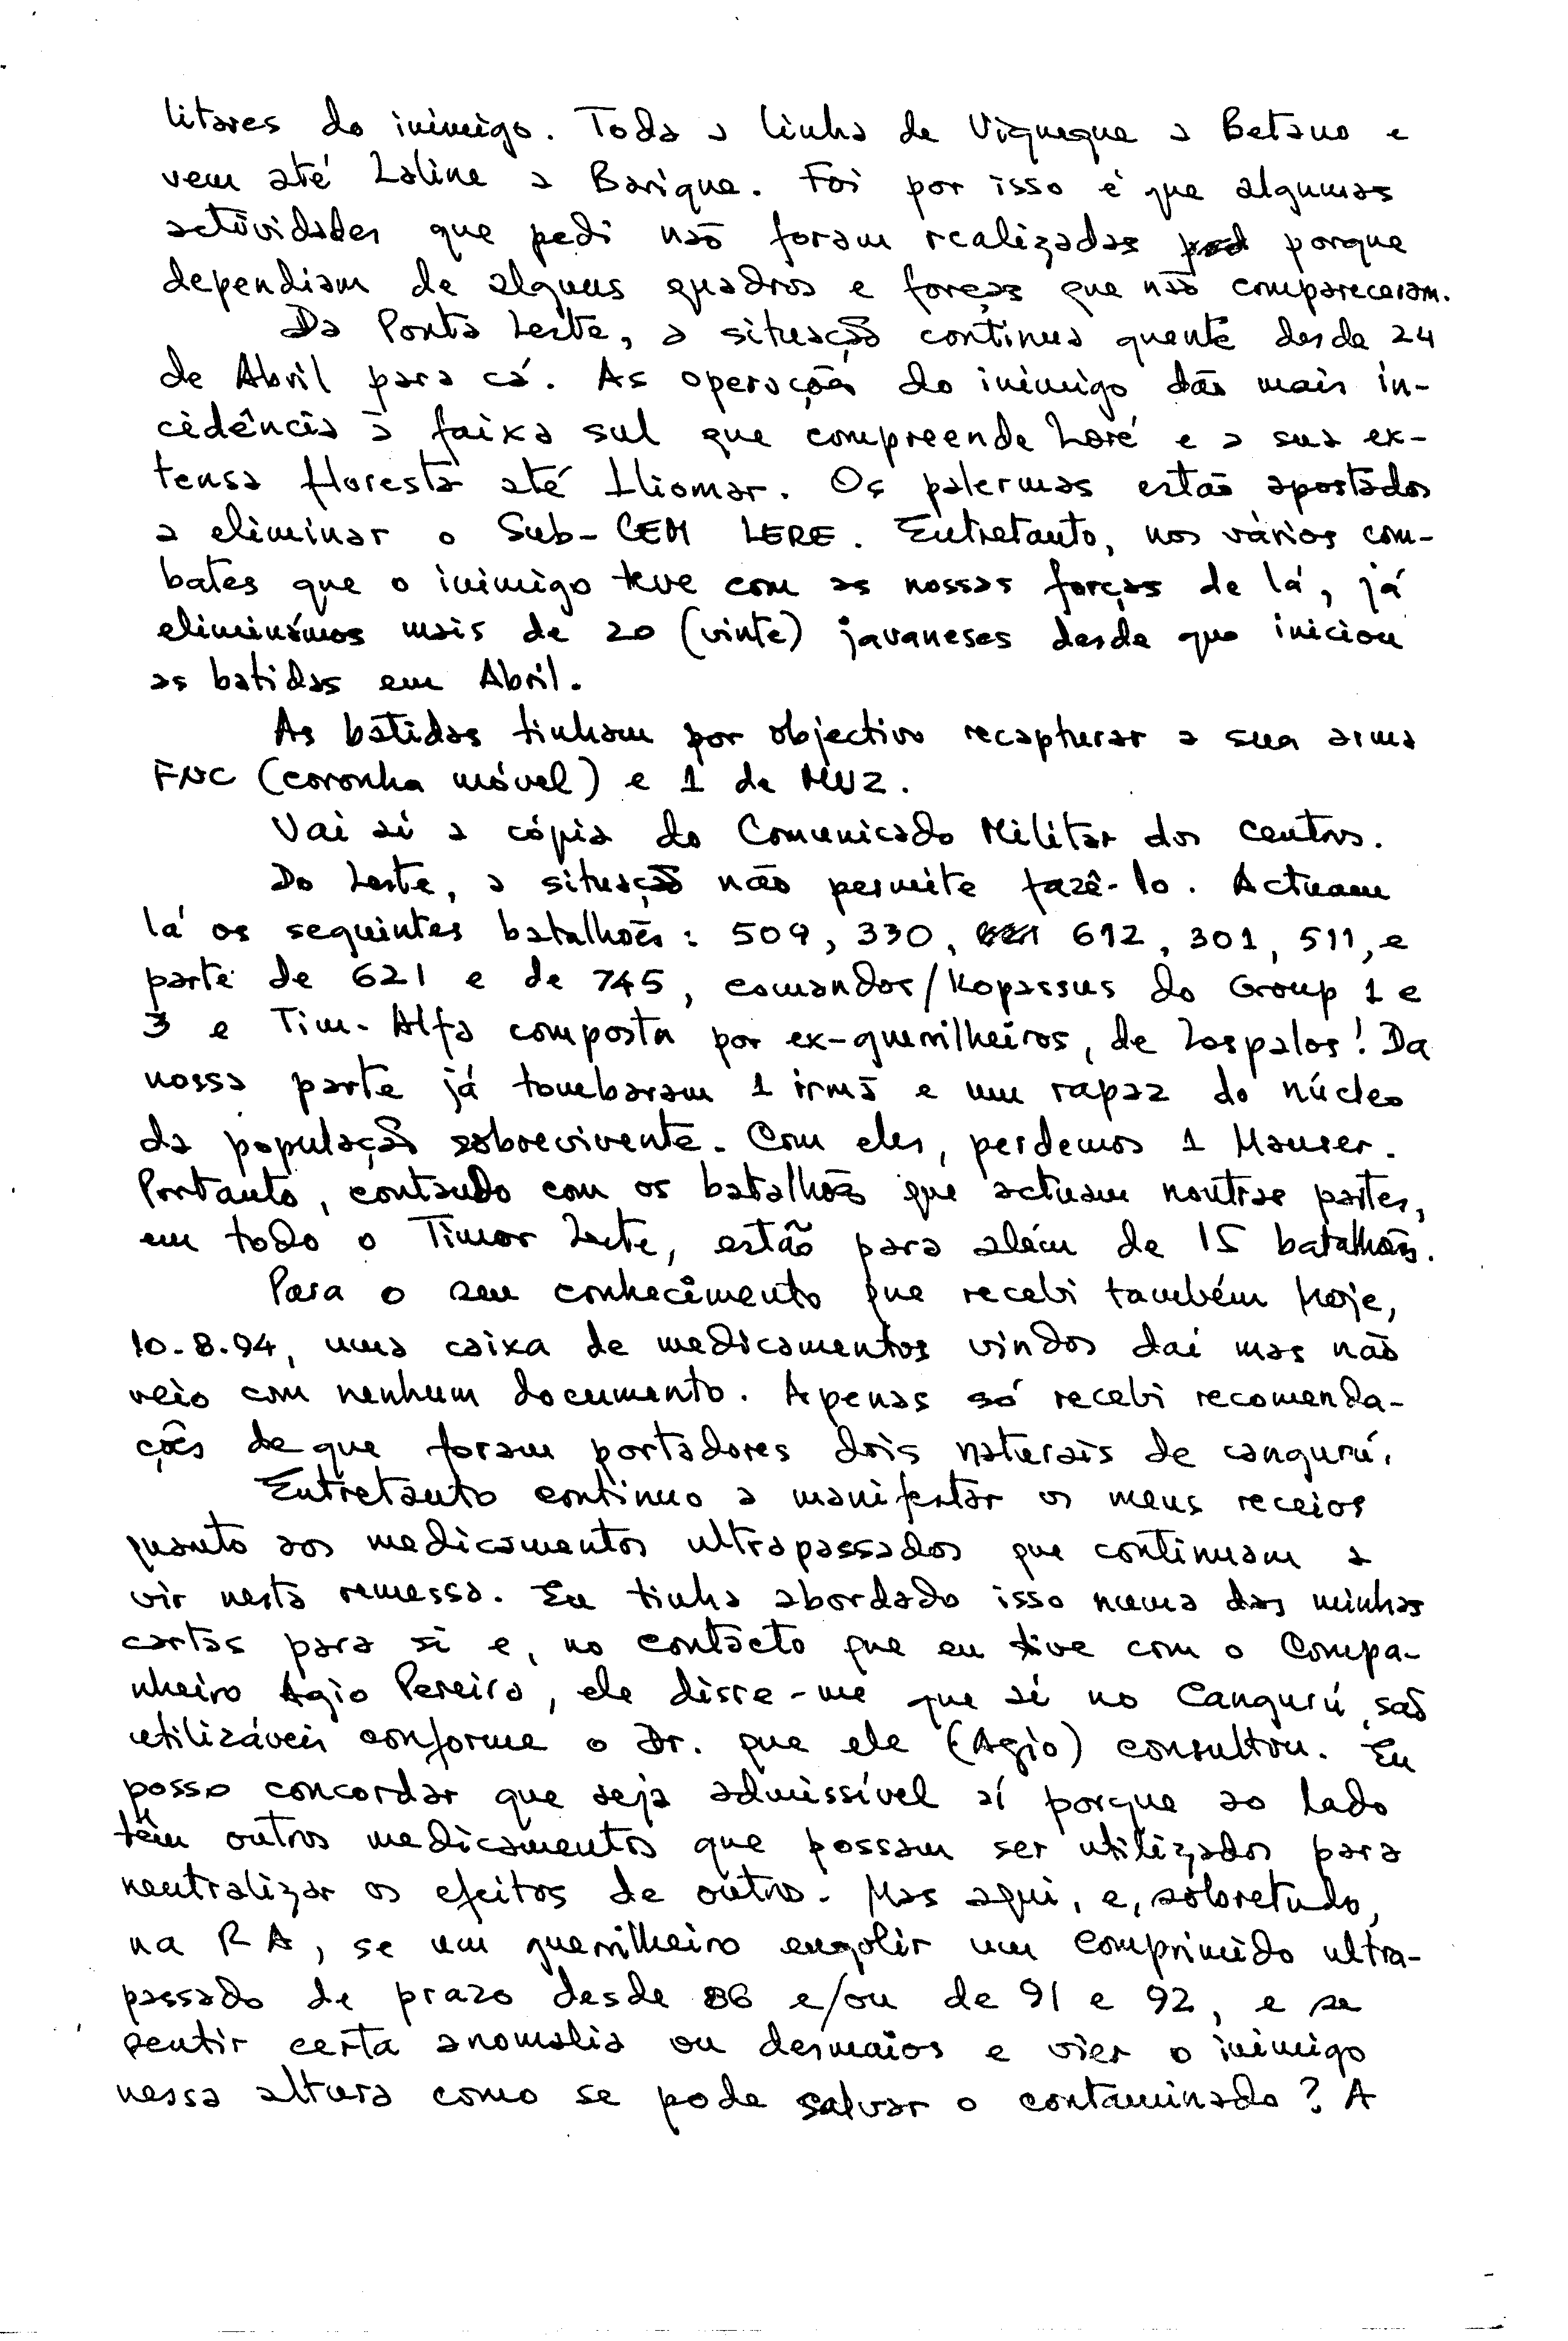 litares do inimigo. Toda a linha de Viqueque a Betano e
vem até Laline a Barique. Foi por isso é que algumas
actividades que pedi não foram realizadas porque
dependiam de alguns quadros e forças que não compareceram.
Da Ponta Leste, a situação continua quente desde 24
de Abril para cá. As operações do inimigo dão mais in-
cidência à faixa sul que compreende Loré e a sua ex-
tensa floresta até Iliomar. Os palermas estão apostados
a eliminar o Sub-CEM LERE. Entretanto, nos vários com-
bates que o inimigo teve com as nossas forças de lá, já
eliminámos mais de 20 (vinte) javaneses desde que iniciou
as batidas em Abril.
As batidas tinham por objectivo recapturar a sua arma
FNC (coronha móvel) e 1 de MUZ.
Vai aí a cópia do Comunicado Militar dos Centros.
Do Leste, a situação não permite fazê-lo. Actuam
lá os seguintes batalhões: 509, 330, 612, 301, 511, e
parte de 621 e de 745, comandos/Kopassus do Group 1 e
3 e Tim-Alfa composta por ex-guerrilheiros, de Lospalos! Da
nossa parte já tombaram 1 irmã e um rapaz do núcleo
da população sobrevivente. Com eles, perdemos 1 Mauser.
Portanto, contando com os batalhões que actuam noutras partes,
em todo o Timor Leste, estão para além de 15 batalhões.
Para o seu conhecimento que recebi também hoje,
10.8.94, uma caixa de medicamentos vindos daí mas não
veio com nenhum documento. Apenas só recebi recomenda-
ções de que foram portadores dois naturais de cangurú.
Entretanto continuo a manifestar os meus receios
quanto aos medicamentos ultrapassados que continuam a
vir nesta remessa. Eu tinha abordado isso numa das minhas
cartas para si e, no contacto que eu tive com o Compa-
nheiro Agio Pereira, ele disse-me que aí no Cangurú são
utilizáveis conforme o Dr. que ele (Agio) consultou. Eu
posso concordar que seja admissível aí porque ao lado
têm outros medicamentos que possam ser utilizados para
neutralizar os efeitos de outro. Mas aqui, e, sobretudo,
na RA, se um guerrilheiro engolir um comprimido ultra-
passado de prazo desde 86 e/ou de 91 e 92, e se
sentir certa anomalia ou desmaios e vier o inimigo
nessa altura como se pode salvar o contaminado? A